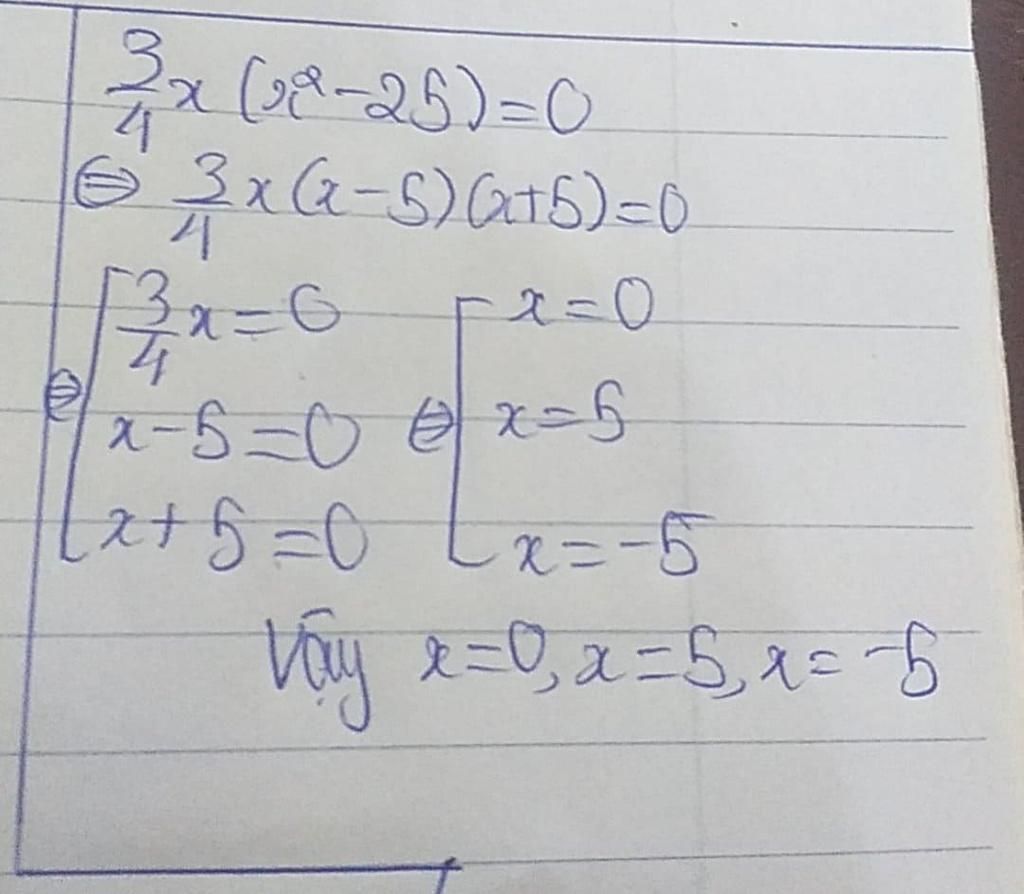 3/4 x (x² - 25) = 0
⇔ 3/4 x (x - 5)(x + 5) = 0
⇔ [ 3/4 x = 0 ⇔ [ x = 0
x - 5 = 0 x = 5
x + 5 = 0 x = -5
Vậy x = 0, x = 5, x = -5